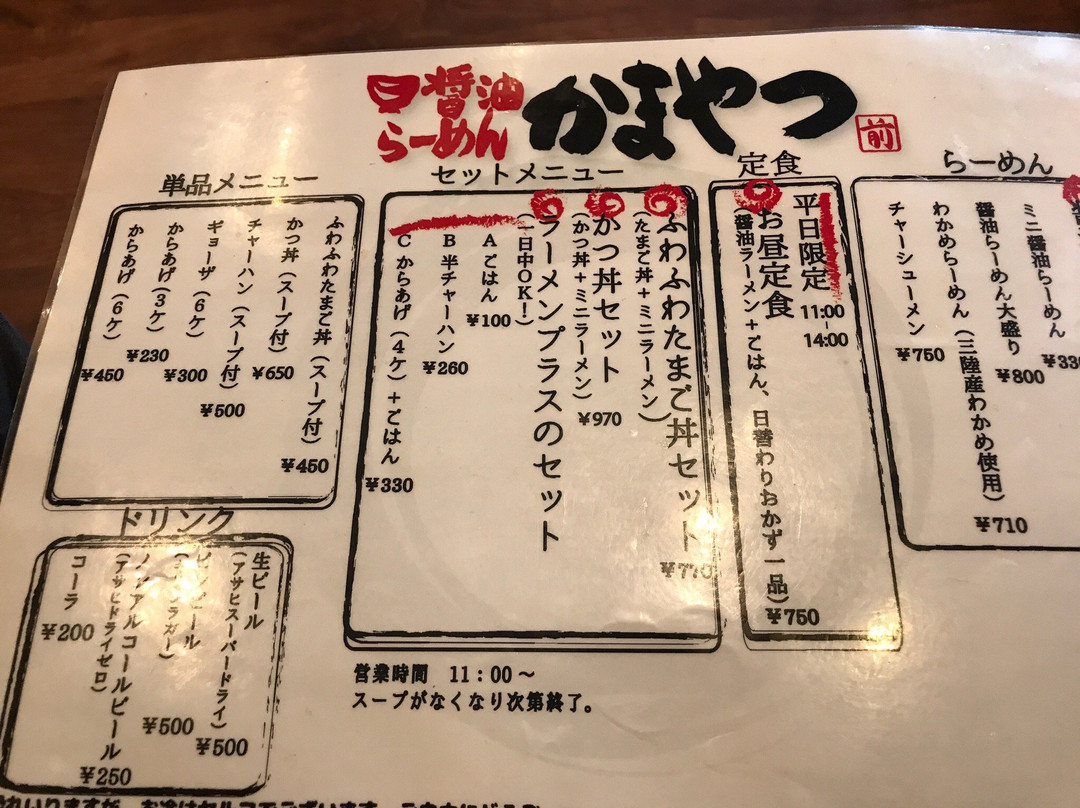 醤油
らーめん
かまやつ
前
らーめん
ミニ醤油らーめん
醤油らーめん大盛り
¥800
わかめらーめん(三陸産わかめ使用)
¥710
チャーシューメン
¥750
定食
平日限定
11:00
-
14:00
お昼定食
(醤油ラーメン+ごはん、日替わりおかず一品)
¥750
セットメニュー
ふわふわたまご丼セット
(たまご丼+ミニラーメン)
¥770
かつ丼セット
(かつ丼+ミニラーメン)
¥970
ラーメンプラスのセット
(一日中OK!)
Aごはん
¥100
B半チャーハン
¥260
Cからあげ(4ケ)+ごはん
¥330
単品メニュー
ふわふわたまご丼(スープ付)
¥450
かつ丼(スープ付)
¥650
チャーハン(スープ付)
¥500
ギョーザ(6ケ)
¥300
からあげ(3ケ)
¥230
からあげ(6ケ)
¥450
ドリンク
生ビール
(アサヒスーパードライ)
¥500
ビール
¥500
ノンアルコールビール
(アサヒドライゼロ)
¥250
コーラ
¥200
営業時間 11:00~
スープがなくなり次第終了。